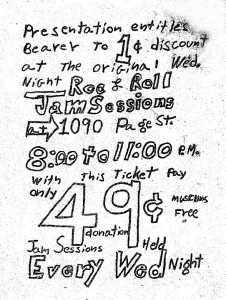 Presentation entitles
Bearer to 1¢ discount
at the original Wed.
Night Roc & Roll
Jam Sessions
at 1090 Page St.
8:00 to 11:00 P.M.
With This Ticket Pay
only 49¢ musicians Free
donation
Jam Sessions Held
Every Wed Night